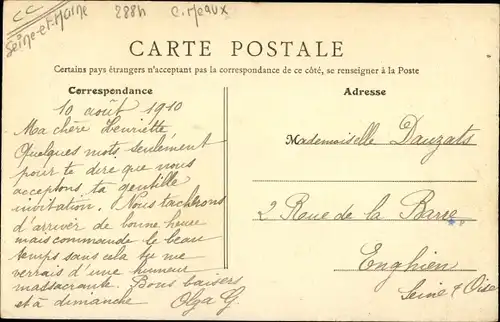 CC
Seine-et-Marne
288h
C. Meaux
CARTE POSTALE
Certains pays étrangers n'acceptant pas la correspondance de ce côté, se renseigner à la Poste
Correspondance
10 août 1910
Ma chère Henriette,
Quelques mots seulement
pour te dire que nous
acceptons ta gentille
invitation. Nous tâcherons
d'arriver de bonne heure
mais commande le beau
temps sans cela tu me
verrais d'une humeur
massacrante. Bons baisers
et à dimanche Olga G.
Adresse
Mademoiselle Dauzats
2 Roue de la Barre
Enghien
Seine & Oise